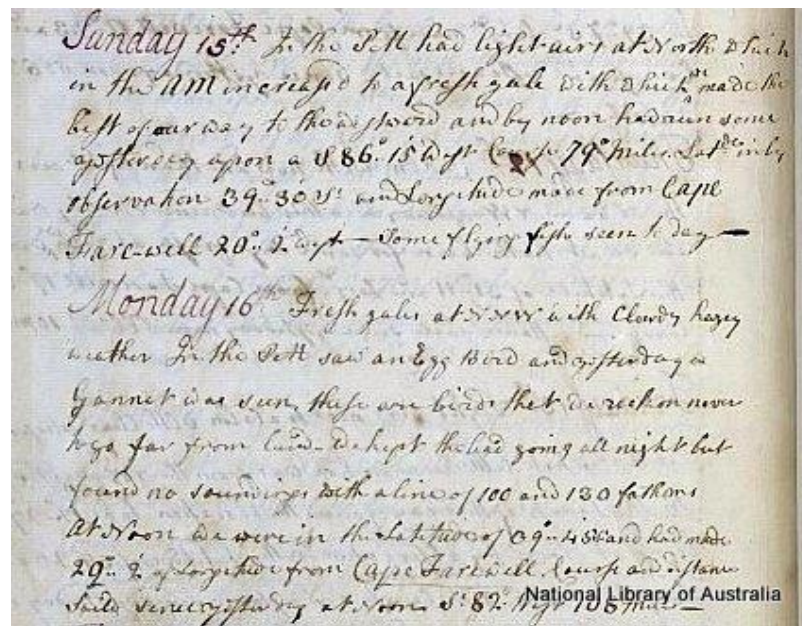 Sunday 15th In the PM had light airs at North which
in the AM increas'd to a fresh gale with which we made the
best of our way to the westward and by noon had run sence
yesterday upon a S 86° 15' West Course 79 Miles. Latde in by
observation 39° 30' S° and Longitude made from Cape
Fare-well 20° 2' West — Some flying fish seen to day —
Monday 16th Fresh gales at NNW with Clowdy hazey
weather In the PM saw an Egg Bird and yesterday a
Gannet was seen, these are birds that we reckon never
to go far from land. We kept the lead going all night but
found no soundings with a line of 100 and 130 fathoms
At Noon we were in the Latitude of 39° 45' S and had made
of Longitude from Cape Farewell Course and distance
saild sence yesterday at Noon S° 82° West 108 Miles —
National Library of Australia